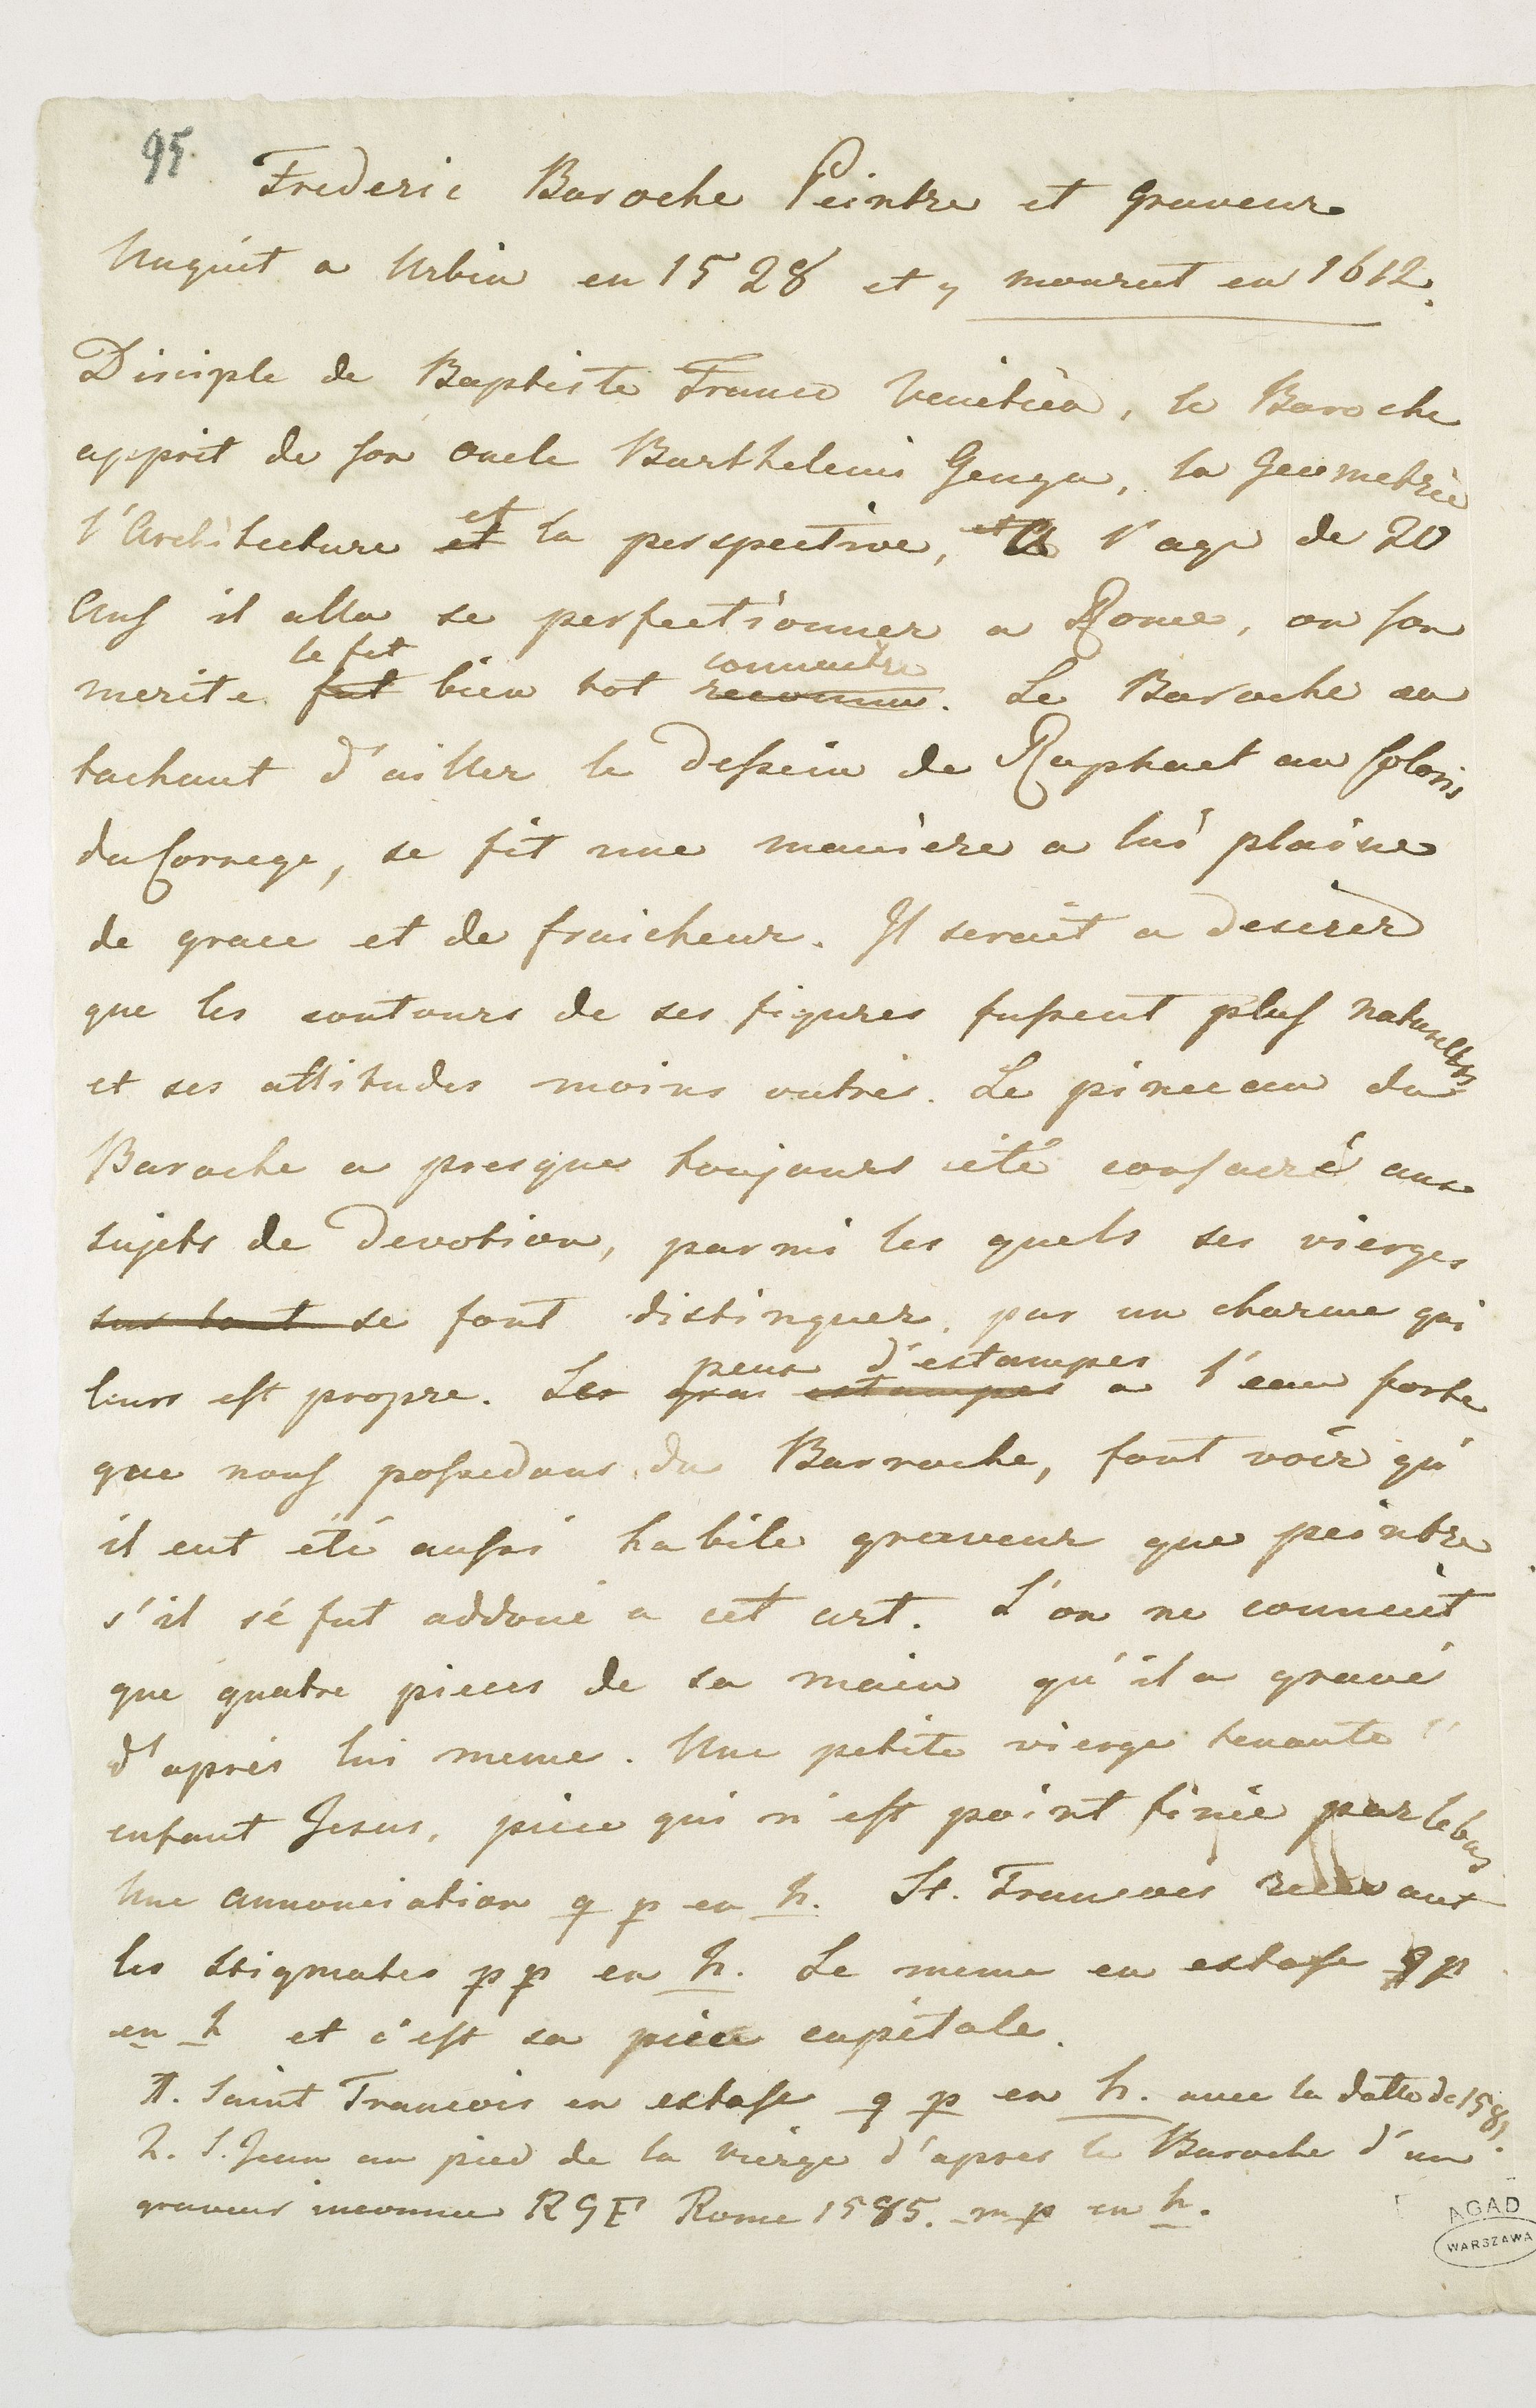 95
Frederic Baroche Peintre et Graveur
Naquit a Urbin en 1528 et y mourut en 1612.
Disciple de Baptiste Franco Venitien, le Baroche
apprit de son oncle Barthelemi Genga, la Geometrie
et
l'Architecture et la perspective, et A l'age de 20
Ans il alla se perfectionner a Rome, ou son
le fit connaitre
merite fut bien tot reconnu. Le Baroche en
tachant d'allier le Dessein de Raphael au Coloris
du Correge, se fit une maniere a lui plaine
de grace et de fraicheur. Il serait a desirer
que les contours de ses figures fussent plus naturelles
et ses attitudes moins outrés. Le pinceau du
Baroche a presque toujours été consacré aux
sujets de Devotion, parmi les quels ses vierges
sur tout se font distinguer, par un charme qui
peux d'estampes
leurs est propre. Les estampes a l'eau forte
que nous possedons du Barroche, font voir qu'
il eut été aussi habile graveur que peintre
s'il sé fut addoné a cet art. L'on ne connait
que quatre pieces de sa main qu'il a gravé
d'aprés lui meme. Une petite vierge tenante l'
enfant Jesus, piece qui n'est point finie par le bas
Une annonciation g p en h. St. Francois recevant
les stigmates p p en h. Le meme en extase g p
en h et c'est sa piece capitale.
1. Saint Francois en extase g p en h. avec la datte de 1581.
2. S. Jean au pied de la vierge d'apres le Baroche d'un
graveur inconnu R G F Rome 1585. m p en h.
AGAD
WARSZAWA